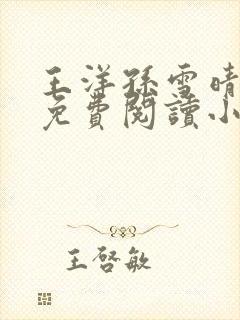 王洋孫雪晴
免費閱讀小
王啓敏